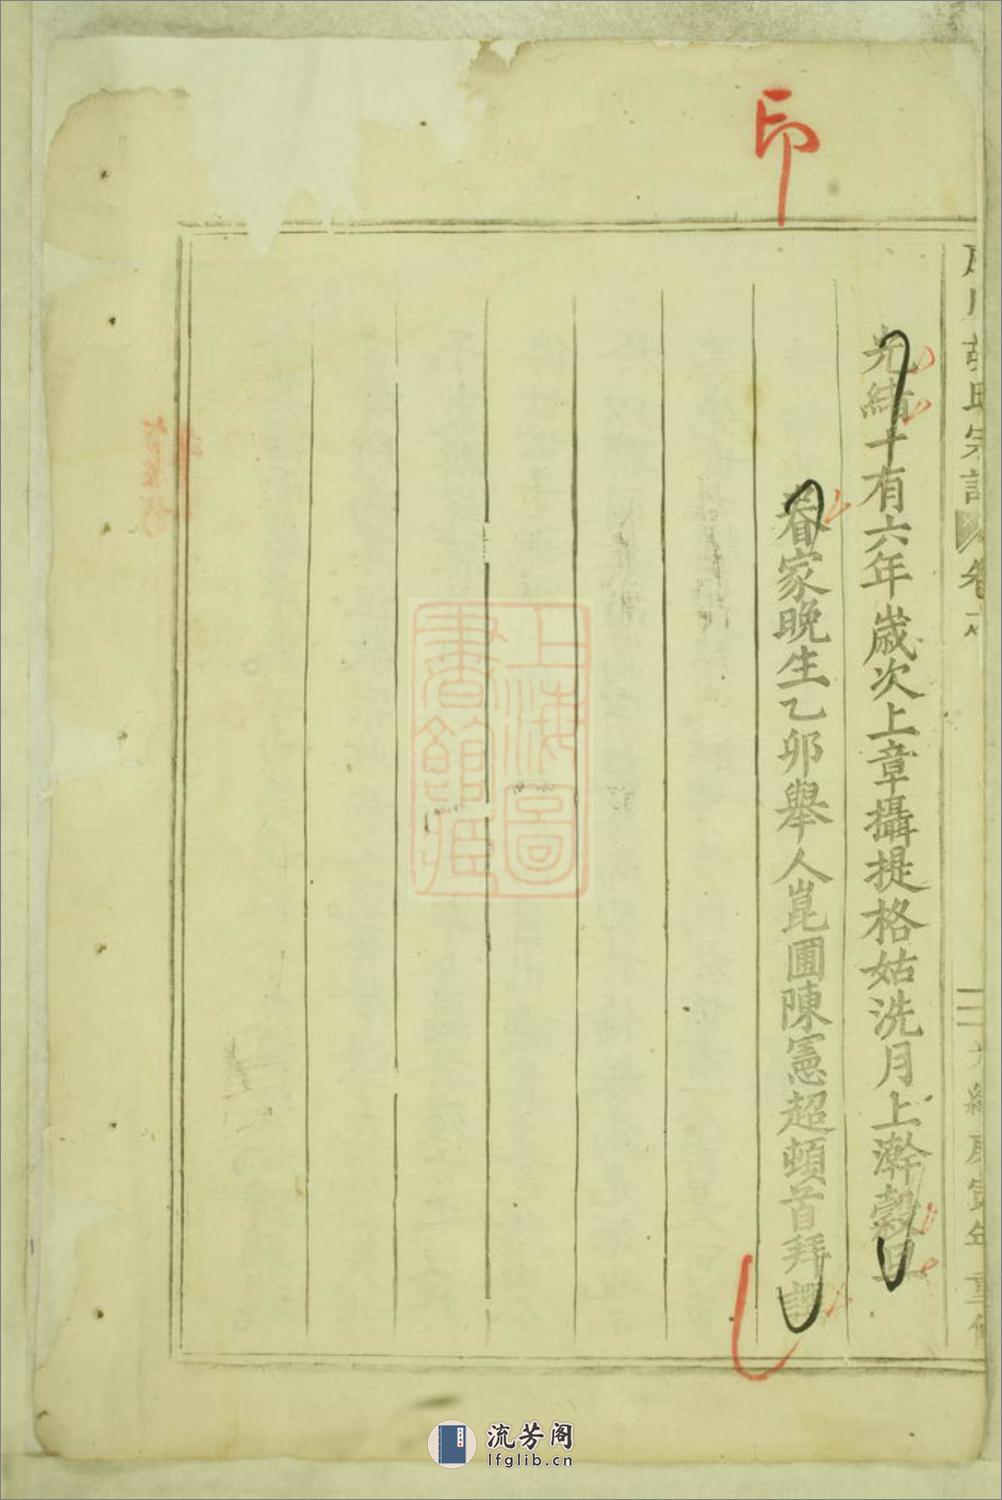 印
胡氏宗譜
光緒十有六年歲次上章攝提格姑洗月上澣穀旦
眷家晚生乙卯舉人崑圃陳憲超頓首拜譔
光緒庚寅年重修
上海圖書館藏
流芳阁
lfglib.cn